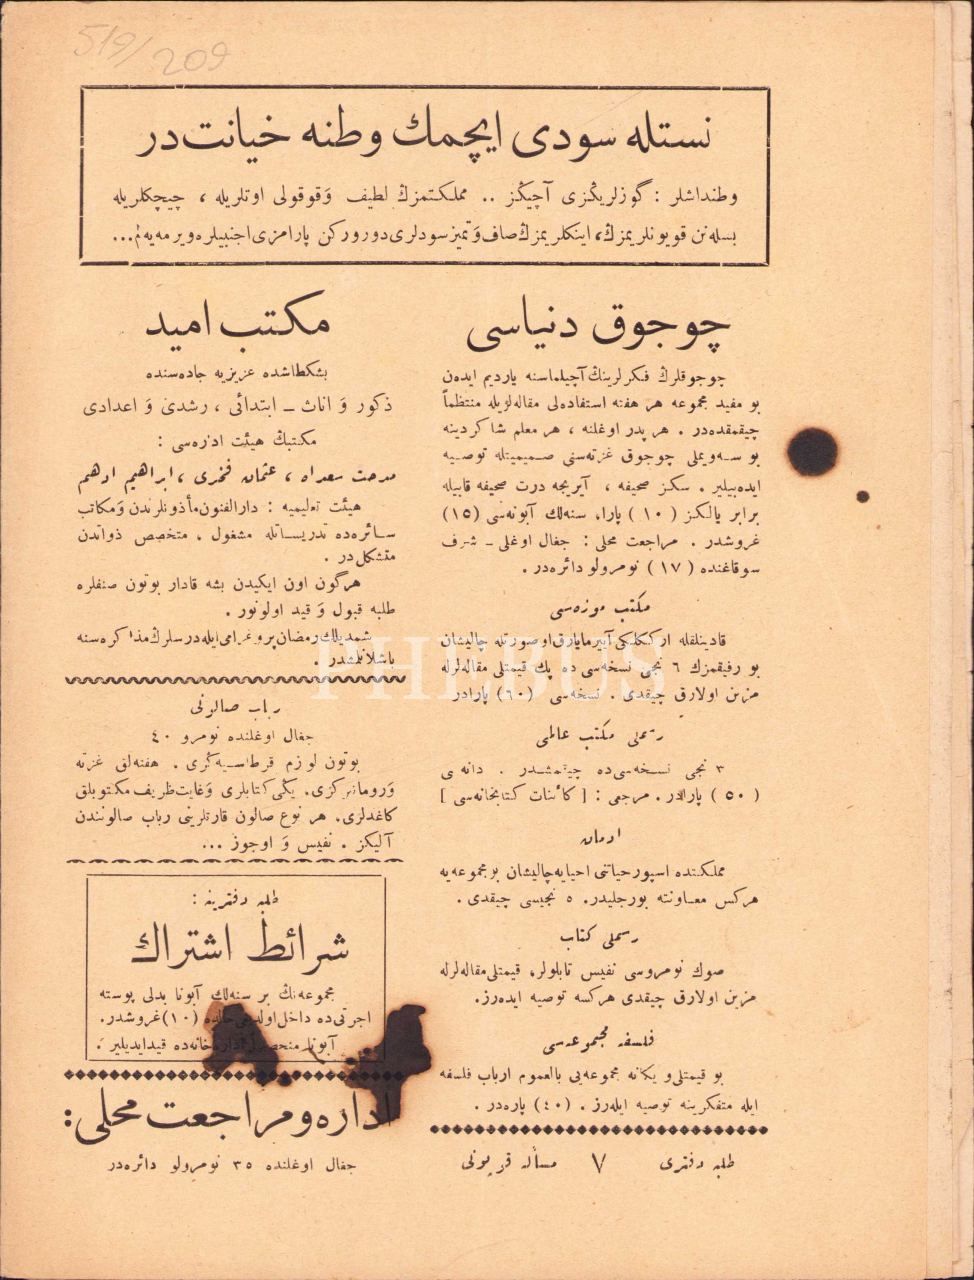 519/209
نستله سودی ایچمك وطنه خیانت در
وطنداشلر : گوزلریڭزی آچیڭز .. مملكتمزڭ لطیف وَ قوقولی اوتلریله ، چیچكلریله
بسله‌نن قویونلریمزڭ، اینكلریمزڭ صاف وَ تمیز سودلری دورورکن پارامزی اجنبیلره ویرمه‌یه‌لم...
چوجوق دنیاسی
چوجوقلرڭ فكرلرینڭ آچیلماسنه یاردیم ایده‌ن
بو مفید مجموعه هر هفته استفاده‌لی مقاله‌لریله منتظماً
چیقمقده‌در . هر پدر اوغلنه ، هر معلم شاكردینه
بو سه‌ویملی چوجوق غزته‌سنی صمیمیتله توصیه
ایده‌بیلیر . سكز صحیفه ، آیریجه درت صحیفه قابیله
برابر یالكز ( ١٠ ) پارا، سنه‌لك آبونه‌سی (١٥)
غروشدر . مراجعت محلی : جغال اوغلی ـ شرف
سوقاغنده ( ١٧ ) نومرولو دائره‌در .
مكتب موزه‌سی
قادینلقله ارككلكی آییرمایارق او صورتله چالیشان
بو رفیقمزڭ ٦ نجی نسخه‌سی ده پك قیمتلی مقاله‌لرله
مزین اولارق چیقدی . نسخه‌سی (٦٠) پارادر
رسملی مكتب عالمی
٣ نجی نسخه‌سی ده چیقمشدر . دانه‌سی
( ٥٠ ) پارالدر . مرجعی : [ كائنات كتابخانه‌سی ]
ادمان
مملكتده اسپور حیاتنی احیایه چالیشان بو مجموعه‌یه
هركس معاونته بورجلیدر. ٥ نجیسی چیقدی .
رسملی كتاب
صوك نومروسی نفیس تابلولر، قیمتلی مقاله‌لرله
مزین اولارق چیقدی هركسه توصیه ایده‌رز.
فلسفه مجموعه‌سی
بو قیمتلی و یكانه مجموعه‌یی بالعموم ارباب فلسفه
ایله متفكرینه توصیه ایله‌رز . (٤٠) پاره‌در .
طلبه دفتری ٧ مسأله قریونی
مكتب امید
بشكطاشده عزیزیه جاده‌سنده
ذكور وَ اناث ـ ابتدائی ، رشدی وَ اعدادی
مكتبڭ هیئت اداره‌سی :
مدحت سعداه ، عثمان فخری ، ابراهیم ادهم
هیئت تعلیمیه : دارالفنون مأذونلرندن وَ مكاتب
سائره‌ده تدریساتله مشغول ، متخصص ذواتدن
متشكل در .
هرگون اون ایكیدن بشه قادار بوتون صنفلره
طلبه قبول وَ قید اولونور .
شمدیلك رمضان پروغرامی ایله درسلرڭ مذاكره‌سنه
باشلانلمشدر .
رباب صالونی
جغال اوغلنده نومرو ٤٠
بوتون لوازم قرطاسیه‌گزی . هفته‌لق غزته
وَ رومانلركزی. یڭی كتابلری وَ غایت ظریف مكتوبلق
كاغدلری. هر نوع صالون قارتلرینی رباب صالونندن
آلیكز . نفیس وَ اوجوز ...
طلبه دفترینه :
شرائط اشتراك
مجموعه‌نڭ بر سنه‌لك آبونا بدلی پوسته
اجرتی ده داخل اولدیغی حالده (١٠) غروشدر.
آبونا منحصراً اداره‌خانه‌ده قید ایدیلیر .
اداره و مراجعت محلی :
جغال اوغلنده ٣٥ نومرولو دائره‌در
PHEBUS